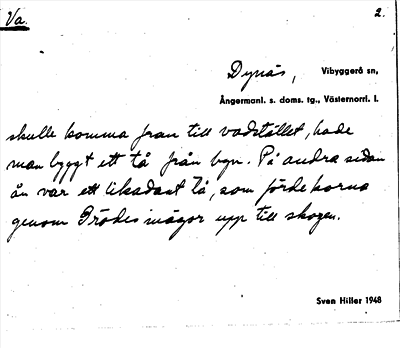 Va. 2.
Dynäs, Vibyggerå sn,
Ångermanl. s. doms. tg., Västernorrl. l.
skulle komma fram till vadstället, hade
man byggt ett tå från byn. På andra sidan
ån var ett likadant tå, som förde korna
genom Brödes inägor upp till skogen.
Sven Hiller 1948